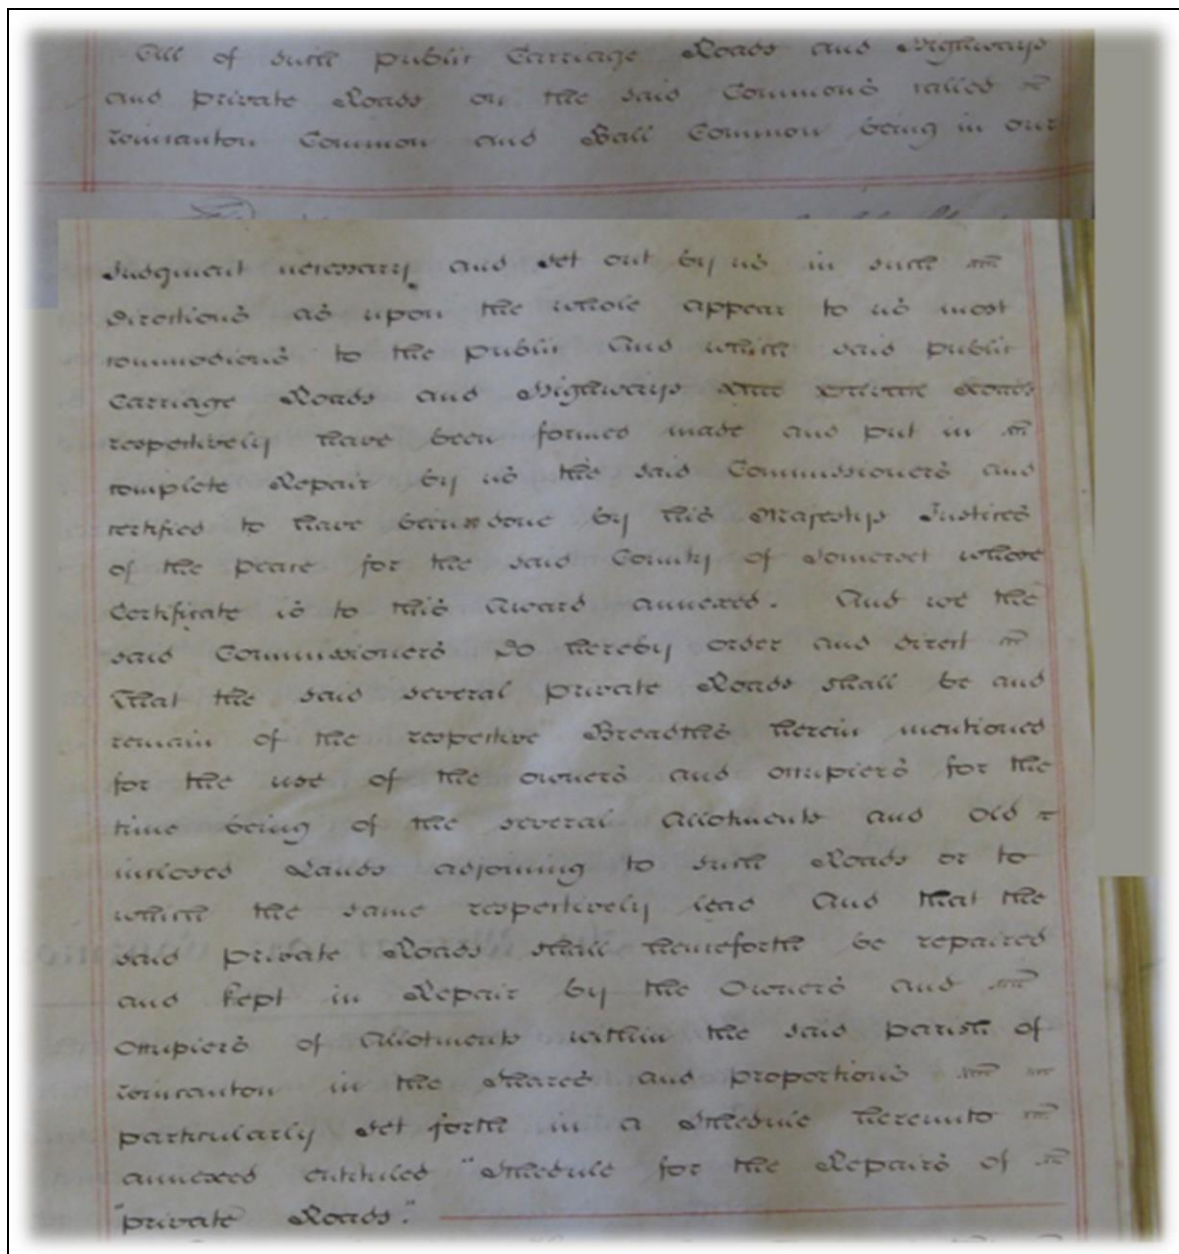 All of such public Carriage Roads and Highways
and private Roads on the said Commons called
Wincanton Common and Ball Common being in our
Judgment necessary and set out by us in such
directions as upon the whole appear to us most
commodious to the public And which said public
Carriage Roads and Highways and private Roads
respectively have been formed made and put in
complete Repair by us the said Commissioners and
certified to have been done by his Majestys Justices
of the peace for the said County of Somerset whose
Certificate is to this Award annexed. And we the
said Commissioners Do hereby order and direct
That the said several private Roads shall be and
remain of the respective Breadths herein mentioned
for the use of the owners and occupiers for the
time being of the several Allotments and old
inclosed Lands adjoining to such Roads or to
which the same respectively lead And that the
said private Roads shall henceforth be repaired
and kept in Repair by the Owners and
Occupiers of Allotments within the said parish of
Wincanton in the Shares and proportions
particularly set forth in a Schedule hereunto
annexed entituled "Schedule for the Repairs of
"private Roads."